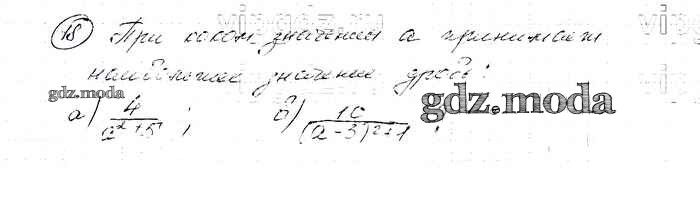 18 При каком значении a принимает
наибольшее значение дробь:
gdz.moda
а) 4/(a² + 5); б) 10/((a - 3)² + 1);
gdz.moda